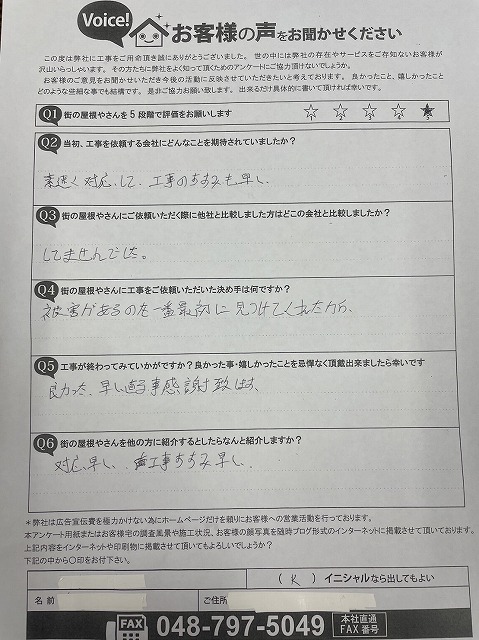 Voice!
お客様の声をお聞かせください
この度は弊社に工事をご用命頂き誠にありがとうございました。世の中には弊社の存在やサービスをご存知ないお客様が
沢山いらっしゃいます。その方たちに弊社をよく知って頂くためのアンケートにご協力頂けないでしょうか。
お客様のご意見をお聞かせいただき今後の活動に反映させていただきたいと考えております。良かったこと、嬉しかったこと
どのような些細な事でも結構です。是非ご協力お願い致します。出来るだけ具体的に書いて頂ければ幸いです。
Q1 街の屋根やさんを5段階で評価をお願いします
1 2 3 4 5
Q2 当初、工事を依頼する会社にどんなことを期待されていましたか？
素速く対応して、工事のすすみも早い、
Q3 街の屋根やさんにご依頼いただく際に他社と比較しました方はどこの会社と比較しましたか？
してませんでした。
Q4 街の屋根やさんに工事をご依頼いただいた決め手は何ですか？
被害があるのを一番最初に見つけてくれたから、
Q5 工事が終わってみていかがですか？良かった事・嬉しかったことを忌憚なく頂戴出来ましたら幸いです
良かった、早い直る事感謝致します、
Q6 街の屋根やさんを他の方に紹介するとしたらなんと紹介しますか？
対応早い、工事すすみ早い、
＊弊社は広告宣伝費を極力かけない為にホームページだけを頼りにお客様への営業活動を行っております。
本アンケート用紙またはお客様宅の調査風景や施工状況、お客様の顔写真を随時ブログ形式のインターネットに掲載させて頂いております。
上記内容をインターネットや印刷物に掲載させて頂いてもよろしいでしょうか？
下記の中から〇印をお付下さい。
（ K ）イニシャルなら出してもよい
名前
ご住所
FAX 048-797-5049 本社直通 FAX番号